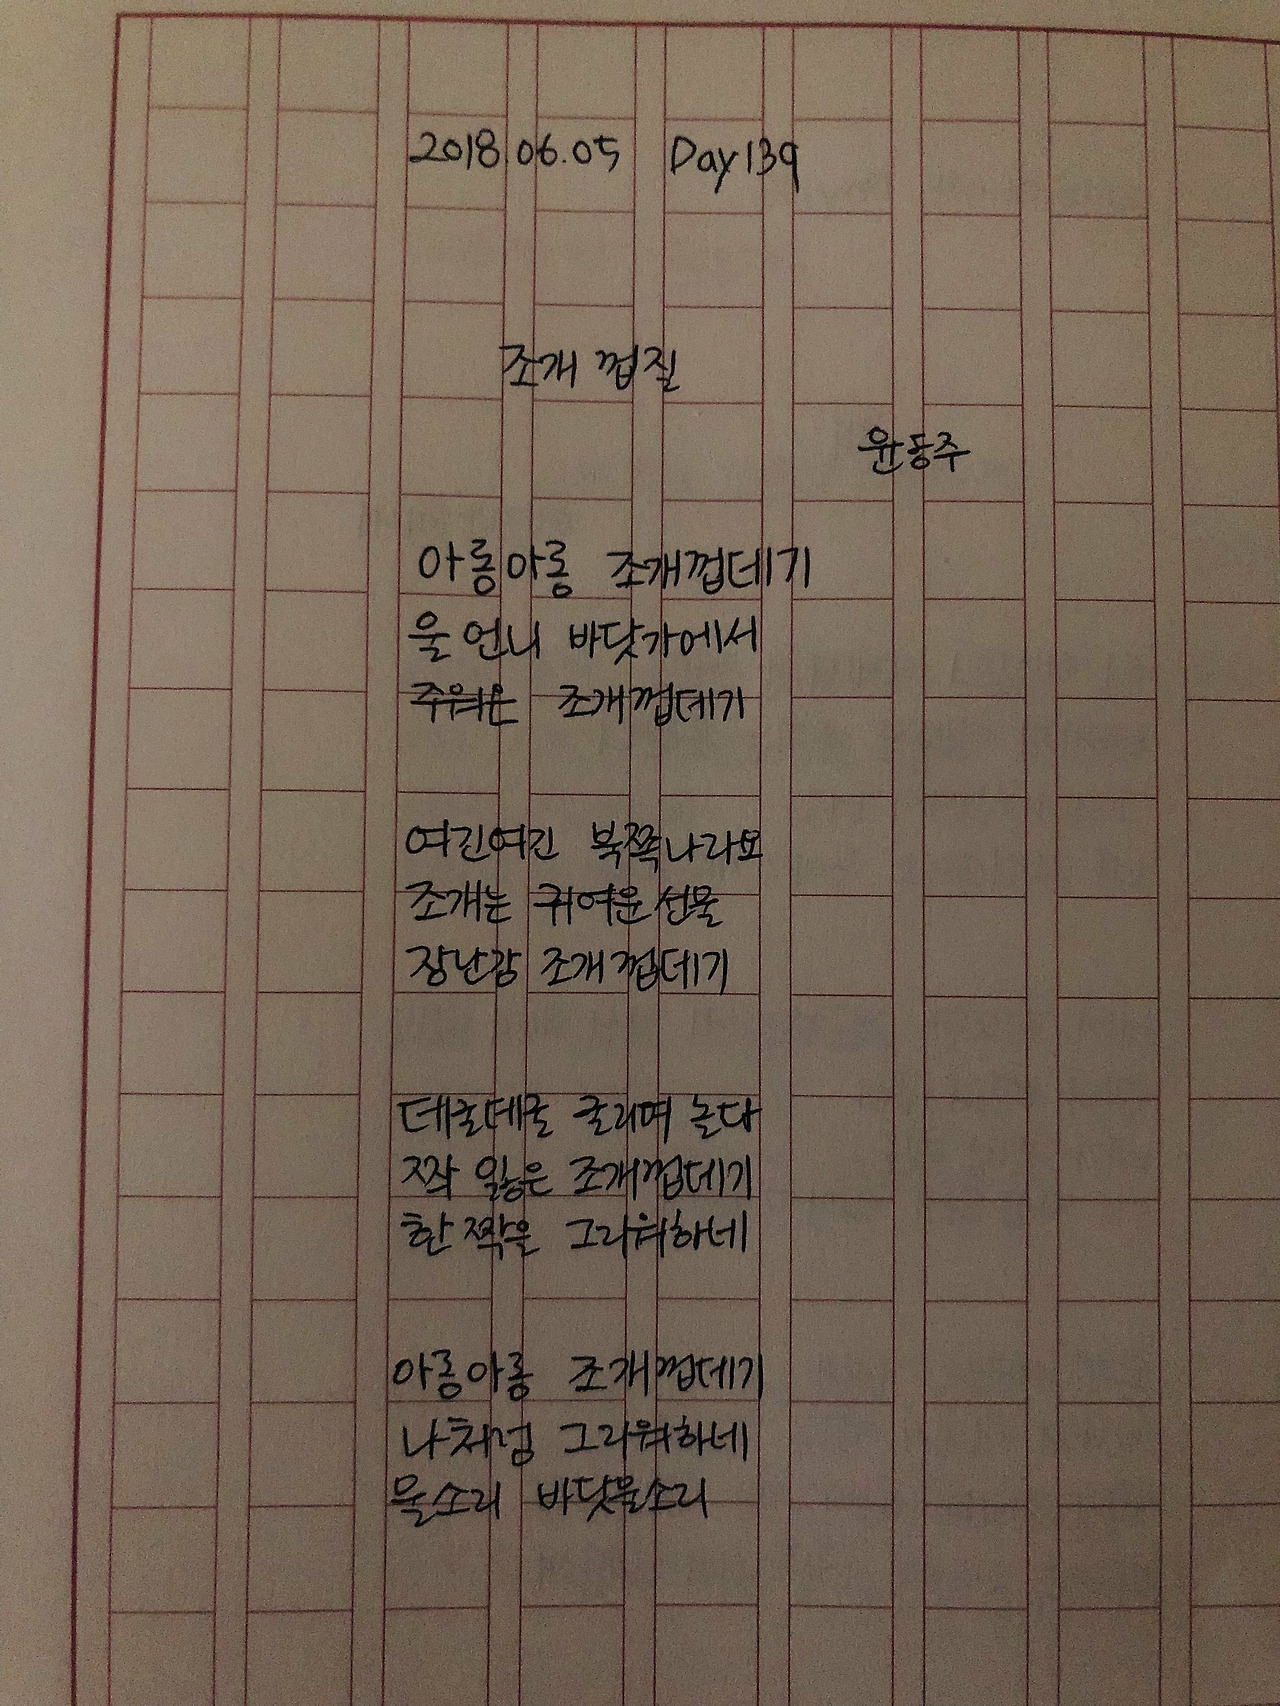 2018.06.05 Day139
조개 껍질
윤동주
아롱아롱 조개껍데기
울 언니 바닷가에서
주워온 조개껍데기
여긴여긴 북쪽나라요
조개는 귀여운 선물
장난감 조개껍데기
데굴데굴 굴리며 논다
짝 잃은 조개껍데기
한 짝을 그리워하네
아롱아롱 조개껍데기
나처럼 그리워하네
물소리 바닷물소리